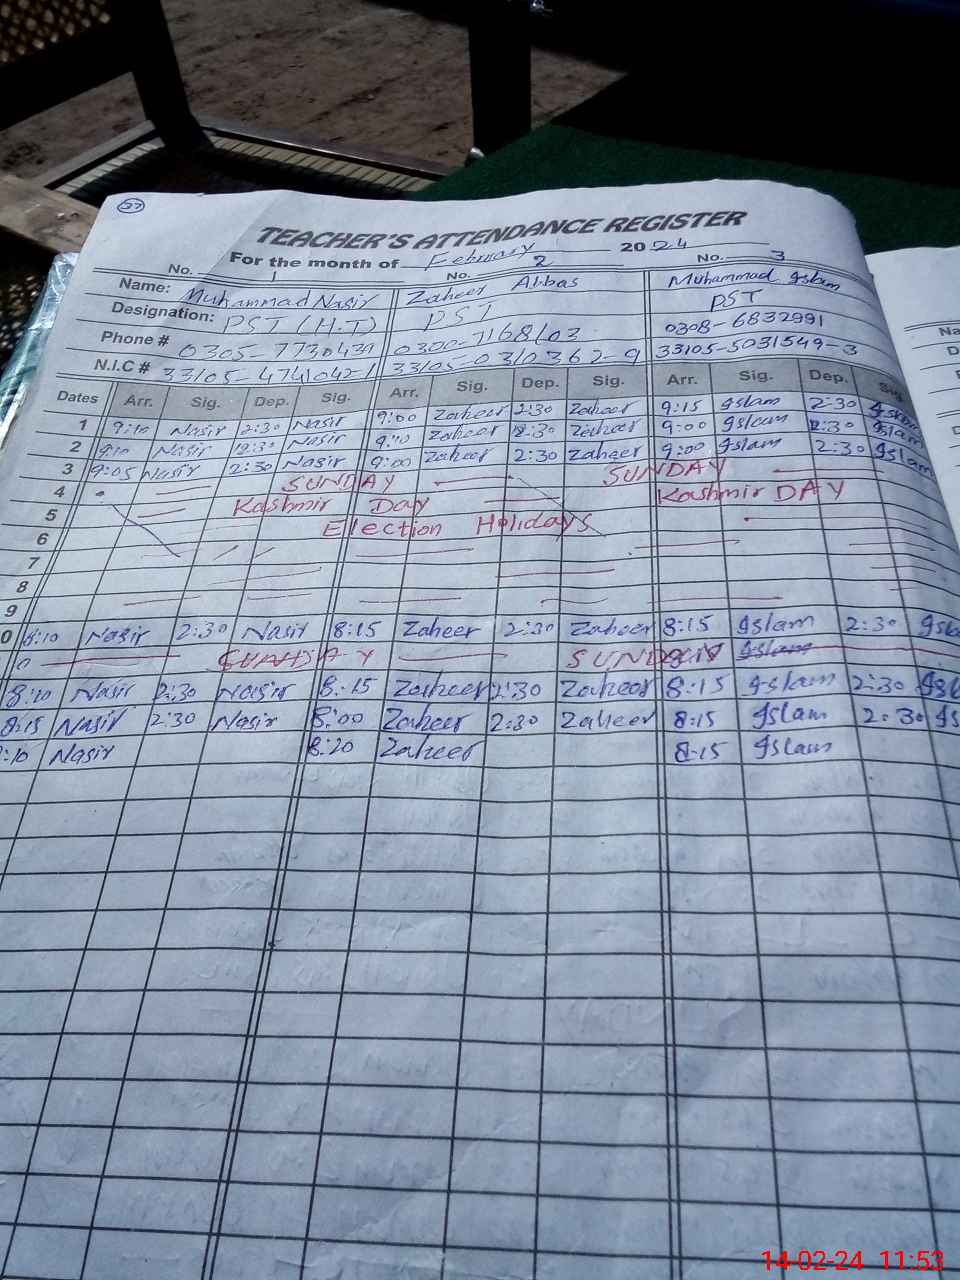 37
TEACHER'S ATTENDANCE REGISTER
For the month of February 2024
No. 1 No. 2 No. 3
Name: Muhammad Nasir Zaheer Abbas Muhammad Islam
Designation: PST (H.T) PST PST
Phone # 0305-7730439 0300-7168103 0308-6832991
N.I.C # 33105-4741042-1 33105-0310362-9 33105-5031549-3
Dates Arr. Sig. Dep. Sig. Arr. Sig. Dep. Sig. Arr. Sig. Dep. Sig.
1 9:10 Nasir 2:30 Nasir 9:00 Zaheer 2:30 Zaheer 9:15 Islam 2:30 Islam
2 9:10 Nasir 12:30 Nasir 9:10 Zaheer 12:30 Zaheer 9:00 Islam 12:30 Islam
3 9:05 Nasir 2:30 Nasir 9:00 Zaheer 2:30 Zaheer 9:00 Islam 2:30 Islam
4 SUNDAY SUNDAY
5 Kashmir Day Kashmir DAY
6 Election Holidays
7
8
9
0 8:10 Nasir 2:30 Nasir 8:15 Zaheer 2:30 Zaheer 8:15 Islam 2:30 Isl
SUNDAY SUNDAY Islam
8:10 Nasir 2:30 Nasir 8:15 Zaheer 2:30 Zaheer 8:15 Islam 2:30 Isl
8:15 Nasir 2:30 Nasir 8:00 Zaheer 2:30 Zaheer 8:15 Islam 2:30 Is
:10 Nasir 8:20 Zaheer 8:15 Islam
Na
D
14-02-24 11:53